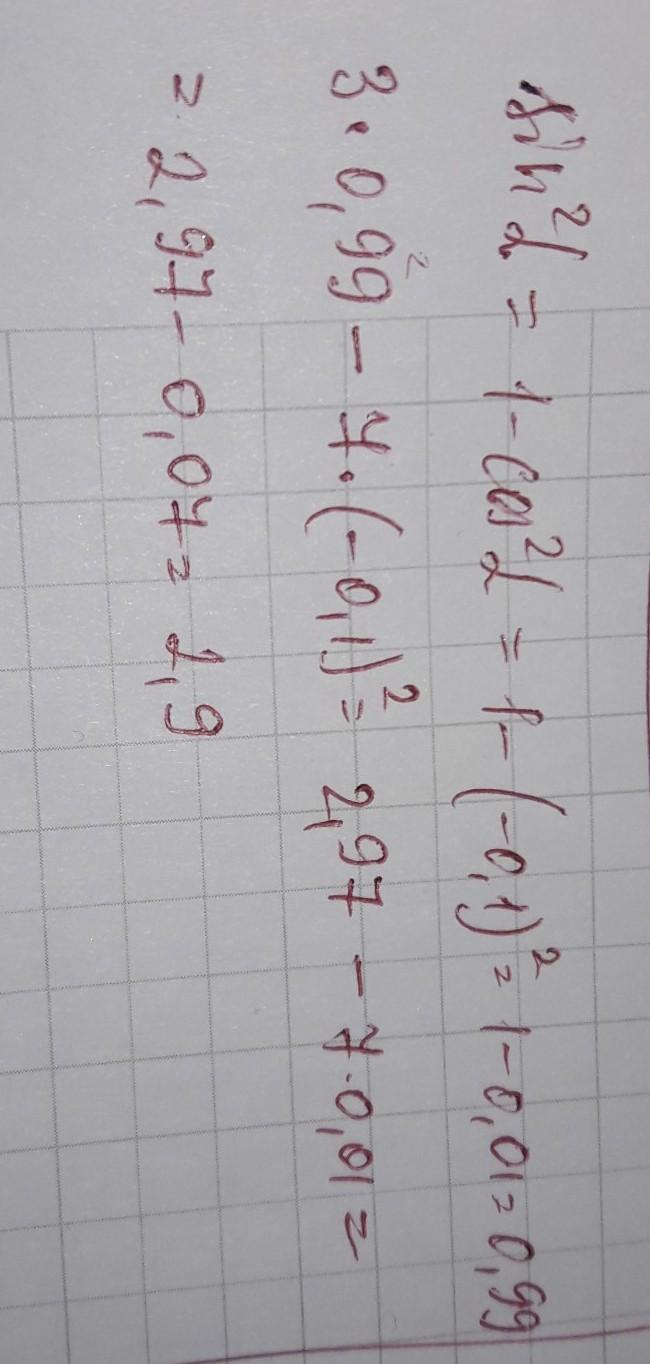 sin²α = 1 - cos²α = 1 - (-0,1)² = 1 - 0,01 = 0,99
3 · 0,99² - 7 · (-0,1)² = 2,97 - 7 · 0,01 =
= 2,97 - 0,07 = 2,9